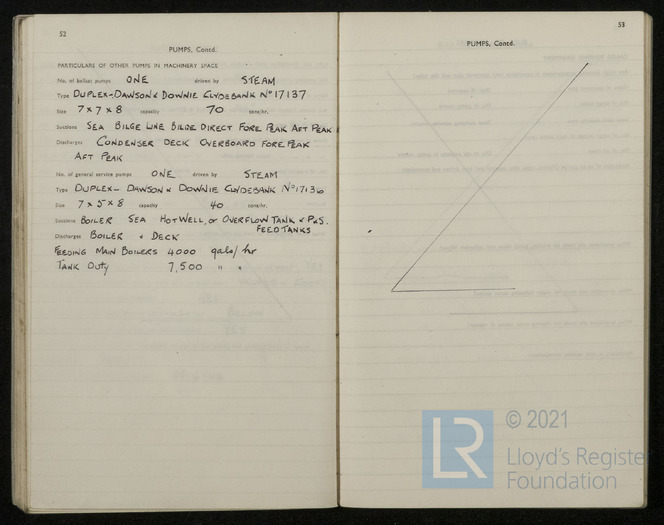 52
PUMPS, Contd.
PARTICULARS OF OTHER PUMPS IN MACHINERY SPACE
No. of ballast pumps ONE driven by STEAM
Type DUPLEX-DAWSON & DOWNIE CLYDEBANK No 17137
Size 7 x 7 x 8 capacity 70 tons/hr.
Suctions SEA BILGE LINE BILGE DIRECT FORE PEAK AFT PEAK
Discharges CONDENSER DECK OVERBOARD FORE PEAK
AFT PEAK
No. of general service pumps ONE driven by STEAM
Type DUPLEX- DAWSON & DOWNIE CLYDEBANK No 17136
Size 7 x 5 x 8 capacity 40 tons/hr.
Suctions BOILER SEA HOTWELL, or OVERFLOW TANK & P&S.
FEED TANKS
Discharges BOILER & DECK
FEEDING MAIN BOILERS 4000 gals/hr
TANK DUTY 7,500 " "
53
PUMPS, Contd.
LR
© 2021
Lloyd's Register
Foundation